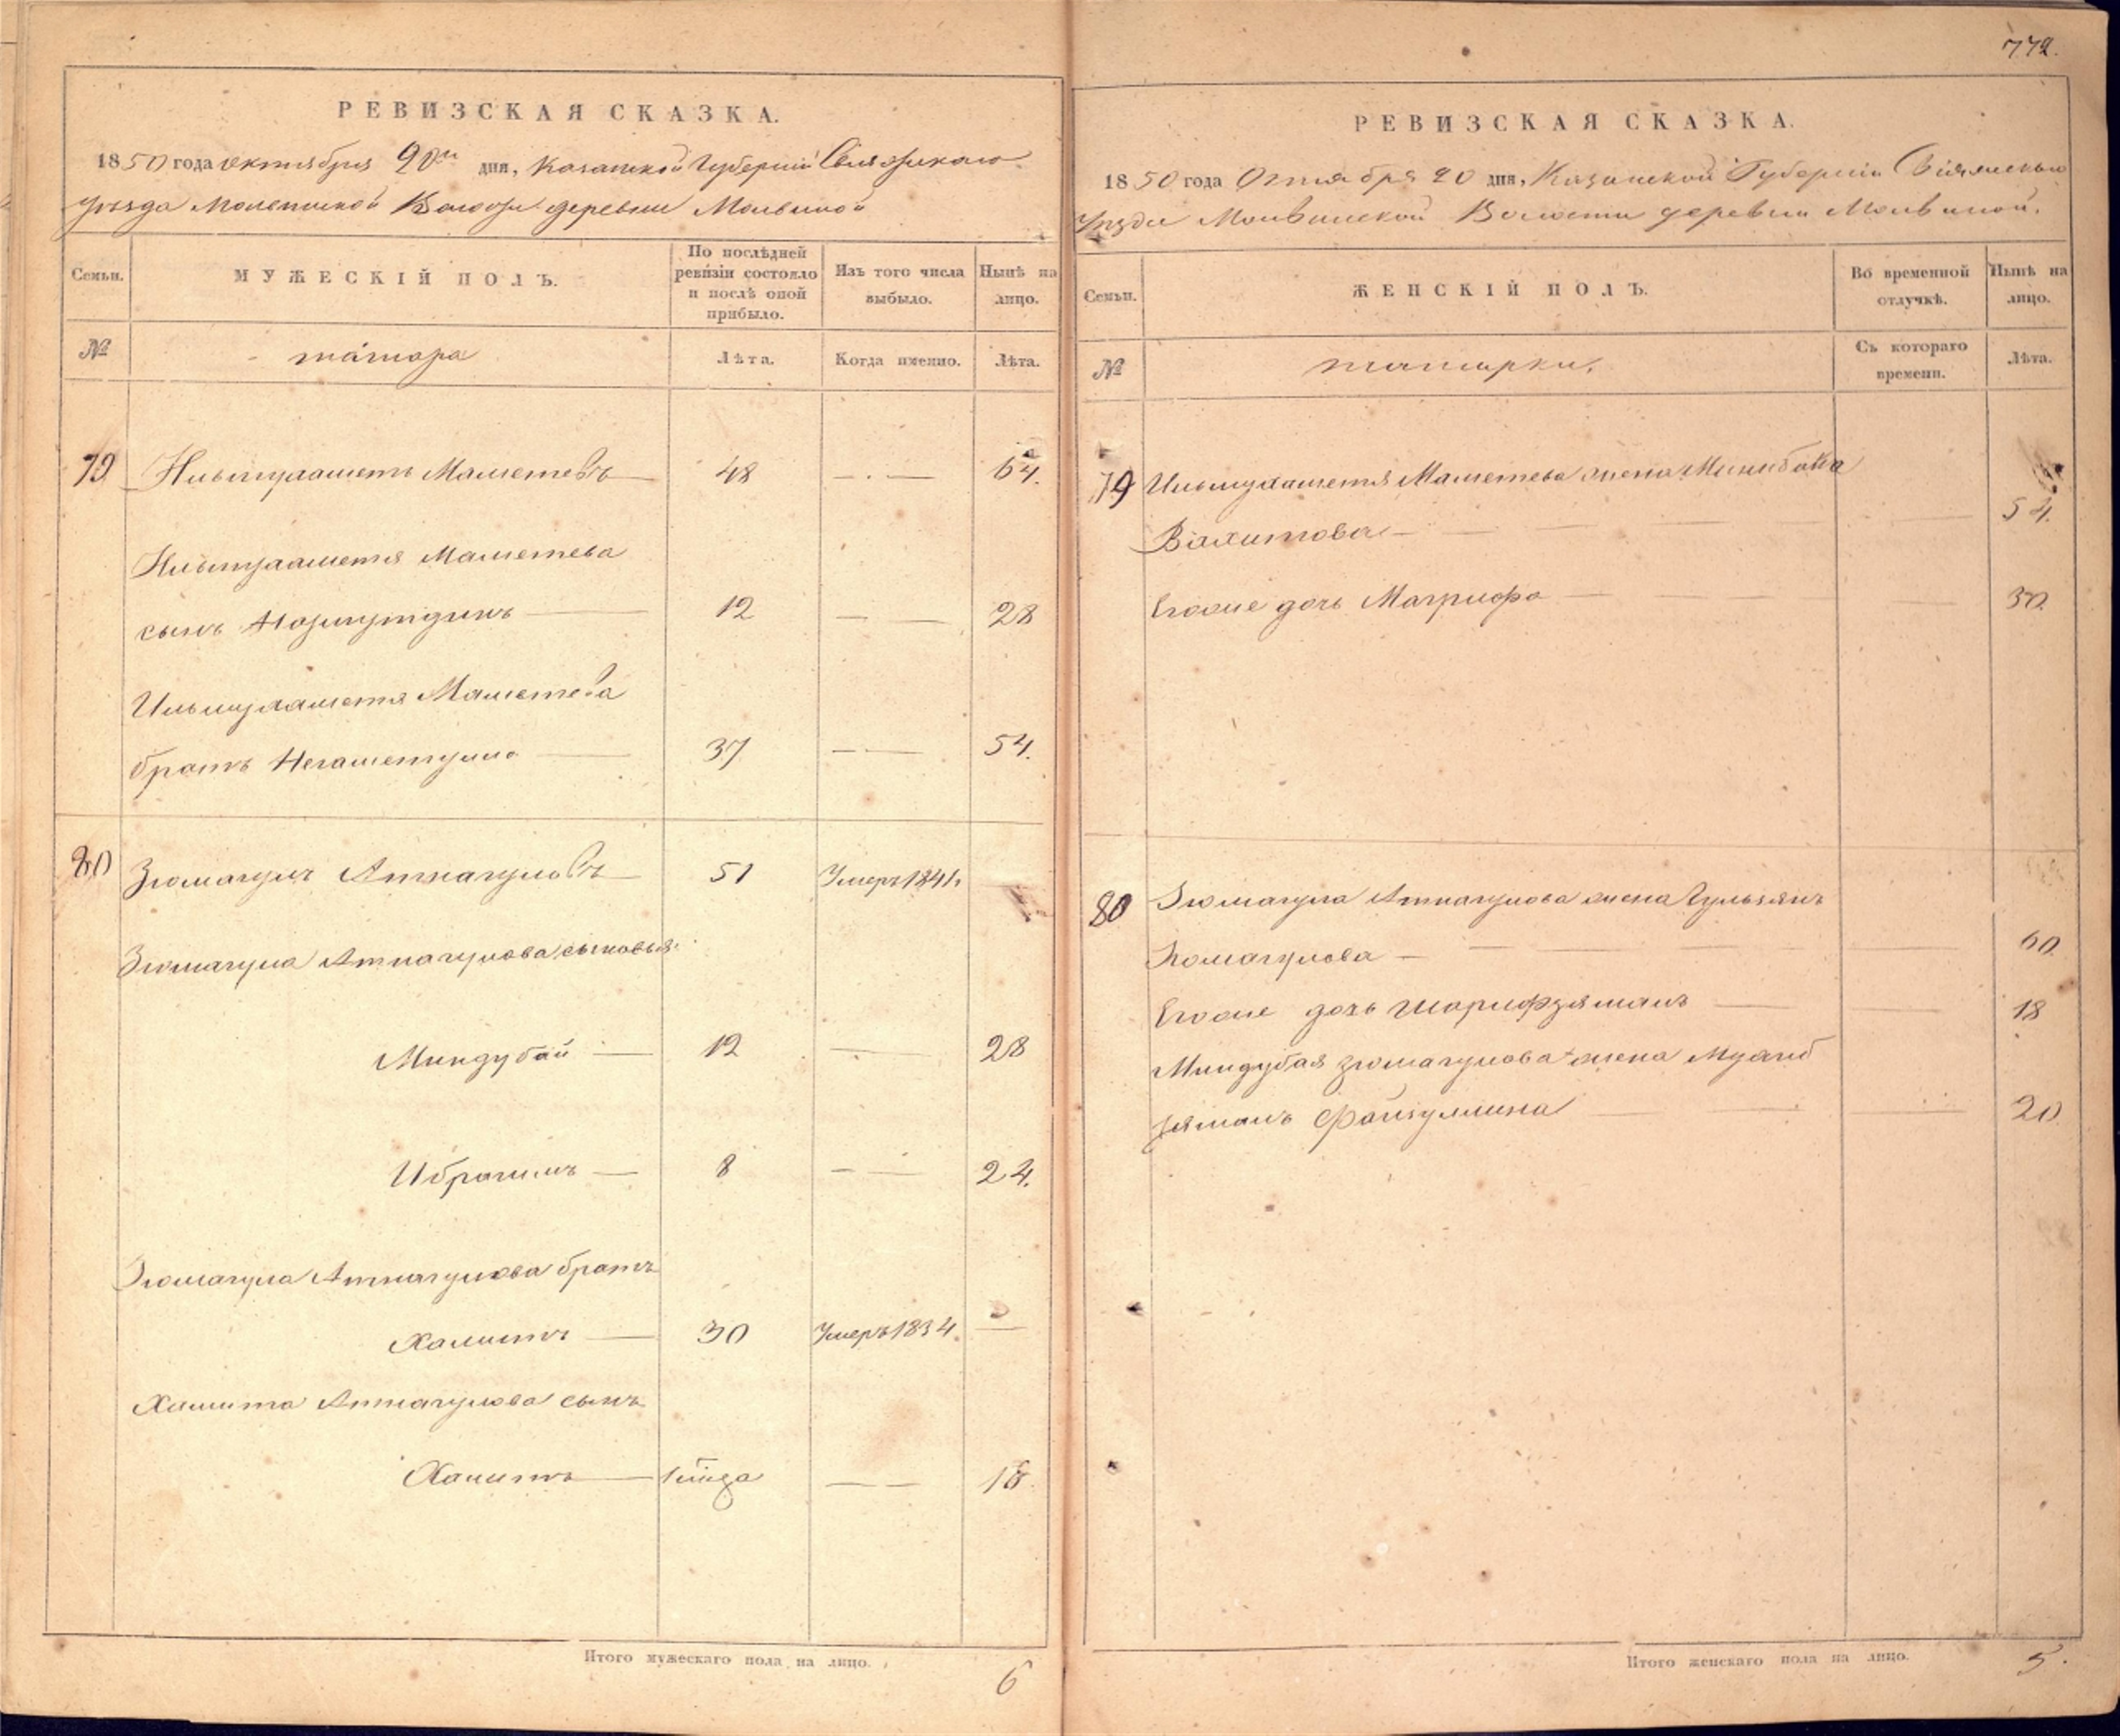 772.
РЕВИЗСКАЯ СКАЗКА.
1850 года октября 20го дня, Казанской Губернии Свіяжскаго
уезда Молвинской Волости деревни Молвиной
Семьи. МУЖЕСКІЙ ПОЛЪ. По послѣдней ревизіи состояло и послѣ оной прибыло. Изъ того числа выбыло. Нынѣ на лицо.
№ татара Лѣта. Когда именно. Лѣта.
79 Ильмухаметъ Маметевъ 48 — 64.
Ильмухаметя Маметева
сынъ 12 — 28
Ильмухаметя Маметева
братъ Негаметулла 37 — 54.
80 Зюмагулъ Атнагуловъ 51 Умеръ 1841.
Зюмагула Атнагулова сыновья:
Миндубай 12 — 28
Ибрагимъ 8 — 24.
Зюмагула Атнагулова братъ
Хамитъ 30 Умеръ 1834. —
Хамита Атнагулова сынъ
— 16
Итого мужескаго пола на лицо. 6
РЕВИЗСКАЯ СКАЗКА.
1850 года Октября 20 дня, Казанской Губерніи Свіяжскаго
Уезда Молвинской Волости деревни Молвиной.
Семьи. ЖЕНСКІЙ ПОЛЪ. Во временной отлучкѣ. Нынѣ на лицо.
№ татарки. Съ котораго времени. Лѣта.
79 Ильмухаметя Маметева жена
Вахитова — 54.
Егоже дочь Магрифа — 30.
80 Зюмагула Атнагулова жена Гульзянъ
Зюмагулова — 60.
Егоже дочь Шарифзяманъ — 18
Миндубая Зюмагулова жена
зяманъ Файзуллина — 20
Итого женскаго пола на лицо. 5.